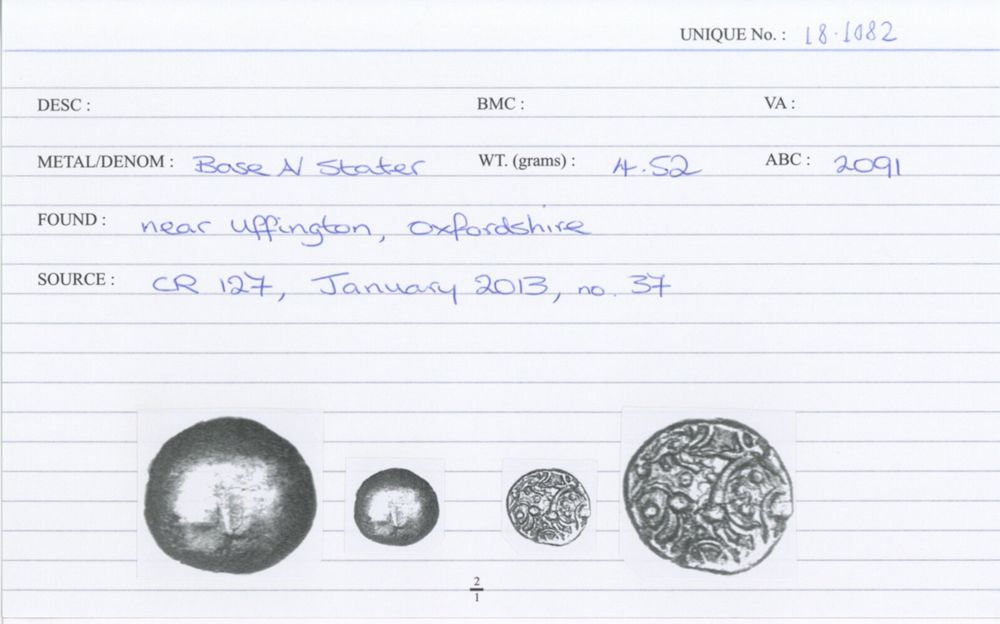 UNIQUE No. : 18.1082
DESC : BMC : VA :
METAL/DENOM : Base N Stater WT. (grams) : 4.52 ABC : 2091
FOUND : near Uffington, Oxfordshire
SOURCE : CR 127, January 2013, no. 37
2
1